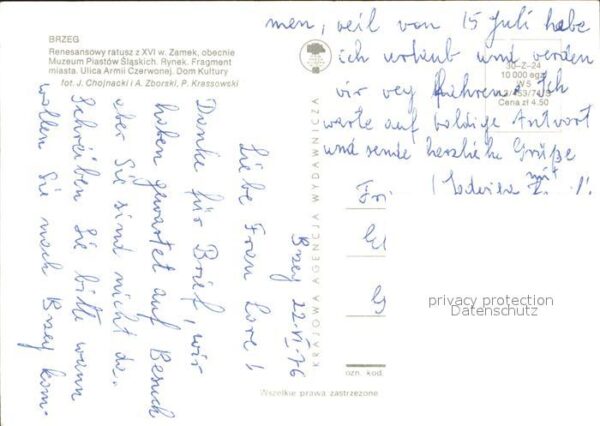 BRZEG
Renesansowy ratusz z XVI w. Zamek, obecnie
Muzeum Piastów Śląskich. Rynek. Fragment
miasta. Ulica Armii Czerwonej. Dom Kultury
fot. J. Chojnacki i A. Zborski, P. Krassowski
Brzeg 22.VI.76
Liebe Frau Lore!
Danke für Brief, wir
haben gewartet auf Besuch
aber Sie sind nicht da.
Schreiben Sie bitte wann
wollen Sie nach Brzeg kom-
men, weil von 15 Juli habe
ich urlaub und werden
wir veg fahren. Ich
warte auf baldige Antwort
und sende herzliche Grüße
mit
KRAJOWA AGENCJA WYDAWNICZA
30-Z-24
10 000 egz.
W 5
Cena zł 4.50
Fr
G
ozn. kod.
Wszelkie prawa zastrzeżone
privacy protection
Datenschutz